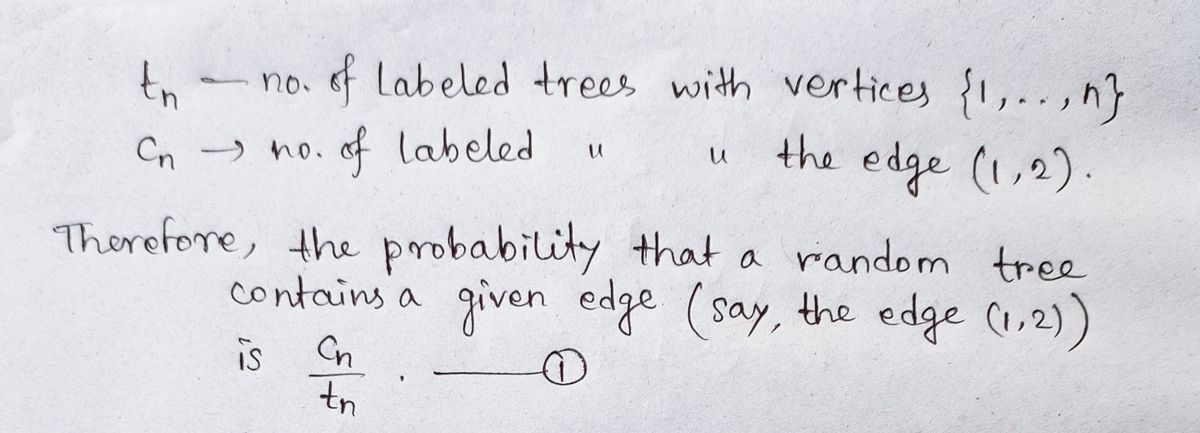 tn — no. of Labeled trees with vertices {1,..,n}
Cn → no. of labeled " " the edge (1,2).
Therefore, the probability that a random tree
contains a given edge (say, the edge (1,2))
is Cn/tn . —— ①